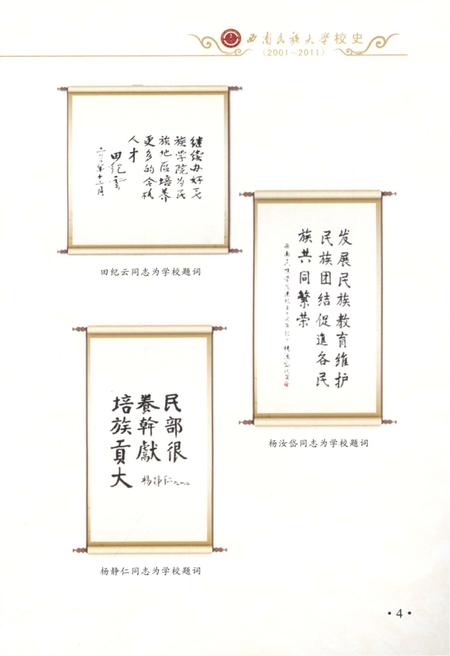 西南民族大学校史
(2001~2011)
继续办好民
族学院为民
族地区培养
更多的合格
人才
田纪云
田纪云同志为学校题词
发展民族教育维护
民族团结促進各民
族共同繁荣
杨汝岱同志为学校题词
民部很
養幹獻
培族貢大
杨静仁
杨静仁同志为学校题词
·4·